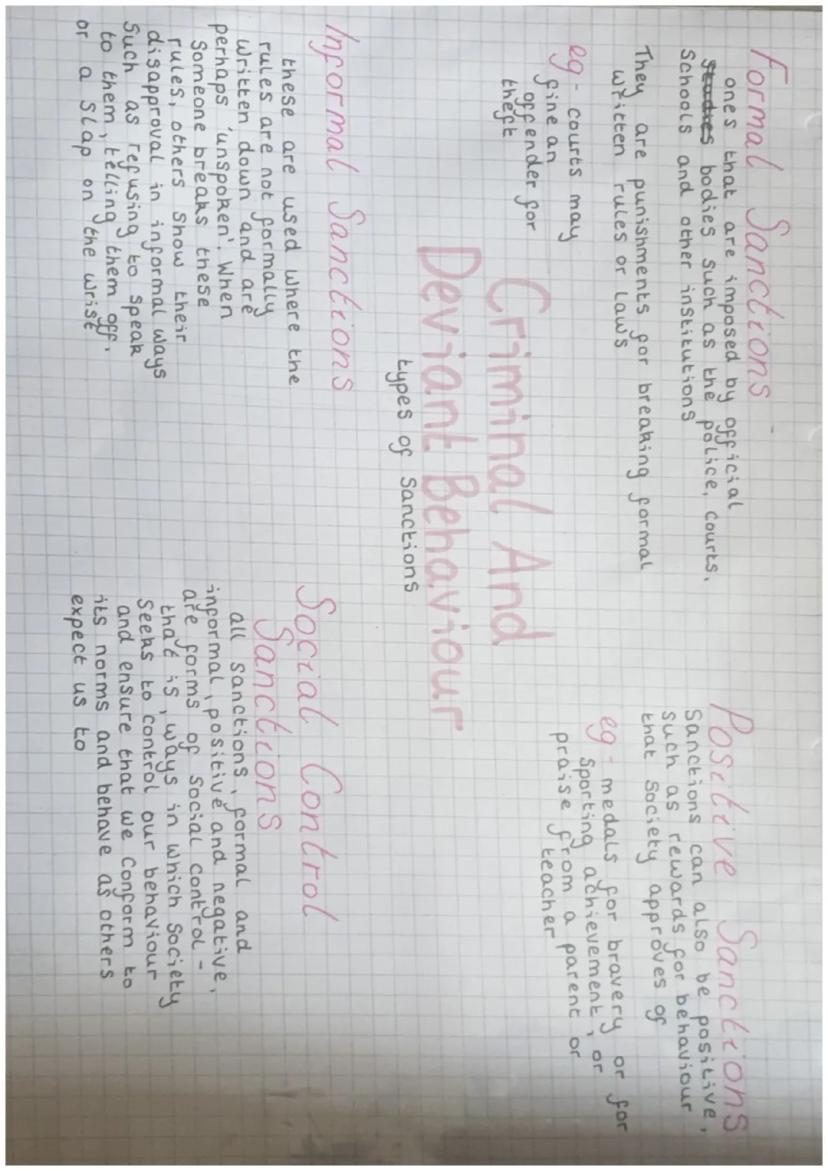 Formal Sanctions
ones that are imposed by official
bodies such as the police, courts,
schools and other institutions
They are punishments for breaking formal
written rules or laws
eg - courts may
fine an
offender for
theft
Positive Sanctions
Sanctions can also be positive,
such as rewards for behaviour
that society approves of
eg - medals for bravery or for
sporting achievement, or
praise from a parent or
teacher
Criminal And
Deviant Behaviour
types of sanctions
Informal Sanctions
these are used where the
rules are not formally
written down and are
perhaps 'unspoken'. When
someone breaks these
rules, others show their
disapproval in informal ways
such as refusing to speak
to them, telling them off,
or a slap on the wrist
Social Control
Sanctions
all sanctions, formal and
informal, positive and negative,
are forms of social control -
that is, ways in which society
seeks to control our behaviour
and ensure that we conform to
its norms and behave as others
expect us to